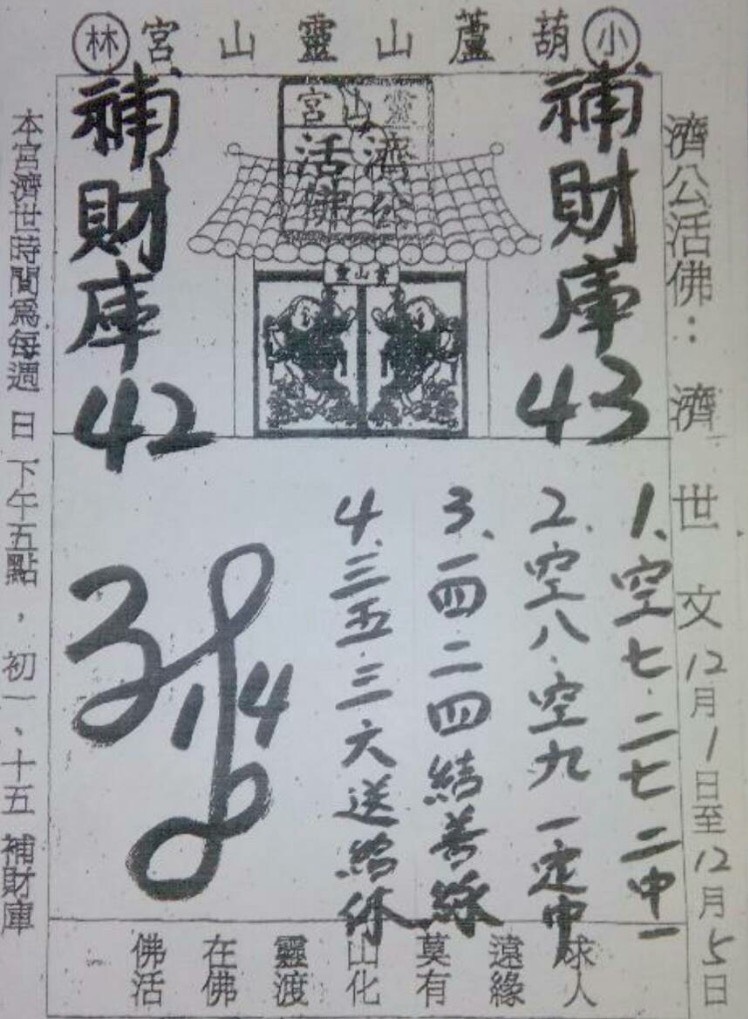 小葫蘆山靈山宮林
濟公活佛：濟世文12月1日至12月5日
補財庫43
靈山宮
濟公
活佛
靈山宮
補財庫42
1、空七．二七二中一
2、空八．空九一定中
3、一四二四結善緣
4、三五．三六送給你
14
求人
遠緣
莫有
山化
靈渡
在佛
佛活
本宮濟世時間為每週日下午五點，初一、十五補財庫